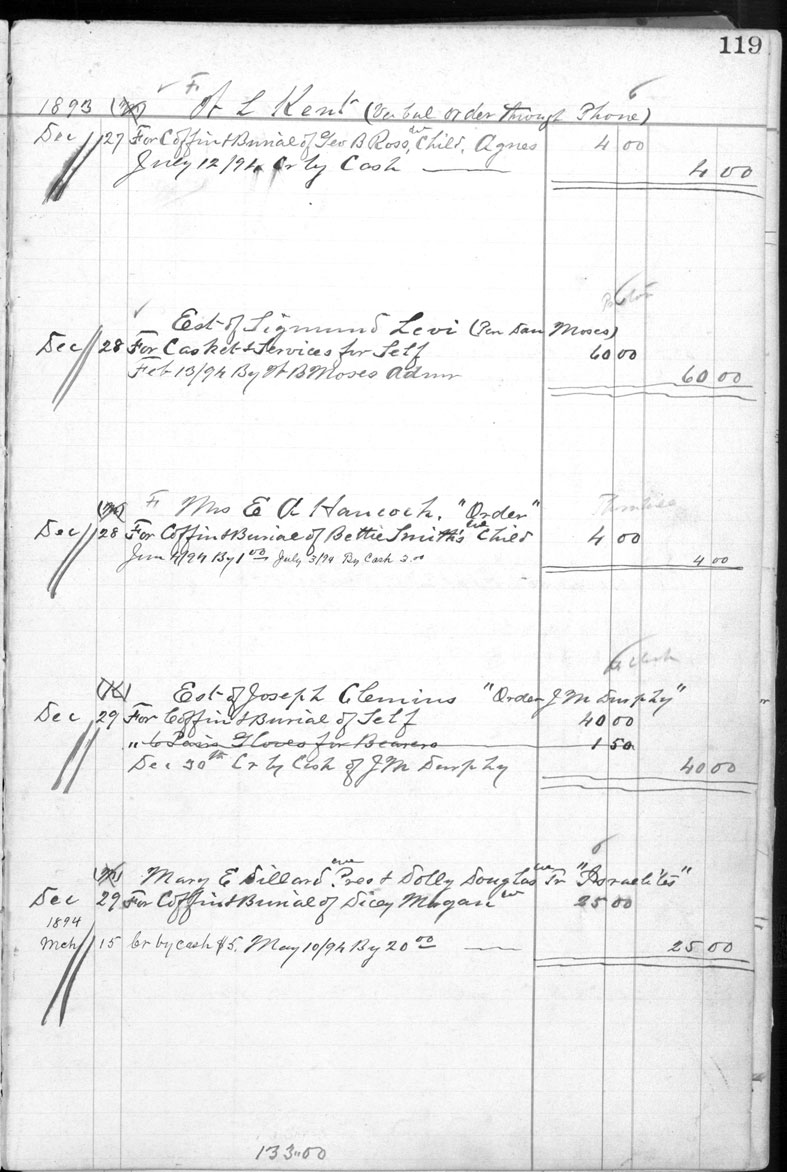 119
1893 (M) F A L Kent (Verbal order through Phone)
Dec 27 For Coffin & Burial of Geo B Ross, Child, Agnes 4 00
July 12/94 Cr by Cash 4 00
Est of Sigmund Levi (Per Dan Moses)
Dec 28 For Casket & Services for Self 60 00
Feb 13/94 By A B Moses Admr 60 00
(M) F Mrs E A Hancock, "Order"
Dec 28 For Coffin & Burial of Bettie Smith's Child 4 00
4/94 By 1 00 July 3/94 By Cash 3 00 4 00
(K) Est of Joseph Clemins "Order J M Durphy"
Dec 29 For Coffin & Burial of Self 40 00
" 6 Pairs Gloves for Bearers 1 50
Dec 30th Cr by Cash of J M Durphy 40 00
(M) Mary E Dillard Pres & Dolly Douglas Tr "Israelites"
Dec 29 For Coffin & Burial of Dicey Mogan 25 00
1894
Mch 15 Cr by cash $5. May 10/94 By 20 00 25 00
133.00